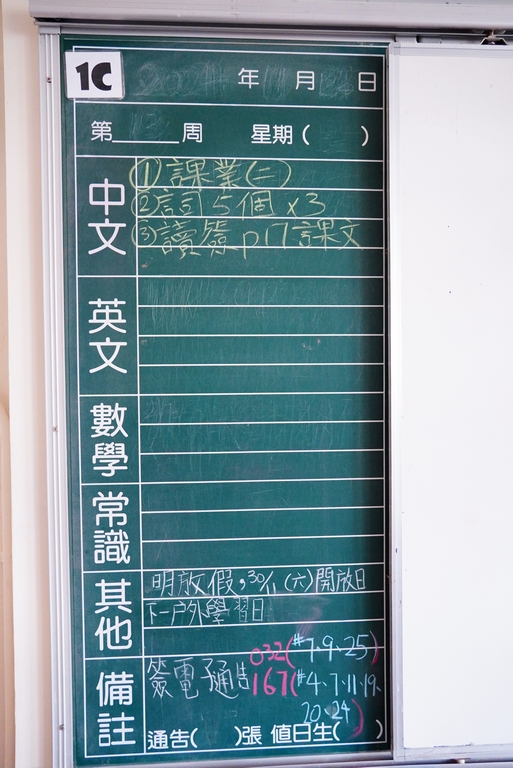 1C
年 月 日
第 周 星期( )
中文
①課業(二)
②詞5個 x3
③讀簽p17課文
英文
數學
常識
其他
明放假,30/11(六)開放日
下一戶外學習日
備註
簽電子通告 032(#7、9、25)
167(#4、7、11、19、
20、24)
通告( )張 值日生( )